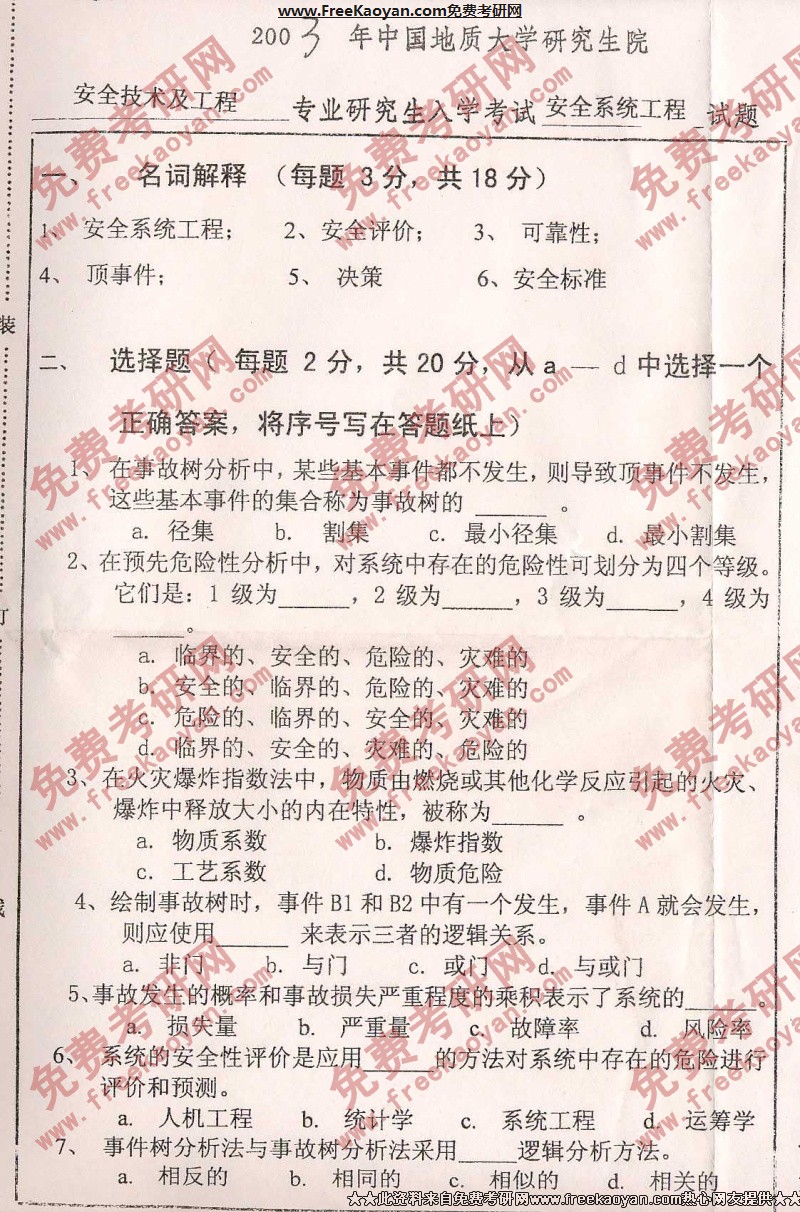 www.FreeKaoyan.com免费考研网
2003 年中国地质大学研究生院
安全技术及工程 专业研究生入学考试 安全系统工程 试题
一、 名词解释 (每题 3分,共18分)
1、 安全系统工程; 2、安全评价; 3、 可靠性;
4、 顶事件; 5、 决策 6、安全标准
二、 选择题( 每题 2分,共20分,从a — d中选择一个
正确答案,将序号写在答题纸上)
1、 在事故树分析中,某些基本事件都不发生,则导致顶事件不发生,
这些基本事件的集合称为事故树的 ______ 。
a. 径集 b. 割集 c. 最小径集 d. 最小割集
2、在预先危险性分析中,对系统中存在的危险性可划分为四个等级。
它们是:1级为______,2级为______,3级为______,4级为
______。
a. 临界的、安全的、危险的、灾难的
b. 安全的、临界的、危险的、灾难的
c. 危险的、临界的、安全的、灾难的
d. 临界的、安全的、灾难的、危险的
3、在火灾爆炸指数法中,物质由燃烧或其他化学反应引起的火灾、
爆炸中释放大小的内在特性,被称为______ 。
a. 物质系数 b. 爆炸指数
c. 工艺系数 d. 物质危险
4、绘制事故树时,事件B1和B2中有一个发生,事件A就会发生,
则应使用______ 来表示三者的逻辑关系。
a. 非门 b. 与门 c. 或门 d. 与或门
5、事故发生的概率和事故损失严重程度的乘积表示了系统的______。
a. 损失量 b. 严重量 c. 故障率 d. 风险率
6、 系统的安全性评价是应用______的方法对系统中存在的危险进行
评价和预测。
a. 人机工程 b. 统计学 c. 系统工程 d. 运筹学
7、 事件树分析法与事故树分析法采用_____逻辑分析方法。
a. 相反的 b. 相同的 c. 相似的 d. 相关的
装
订
线
★★此资料来自免费考研网www.freekaoyan.com热心网友提供★★